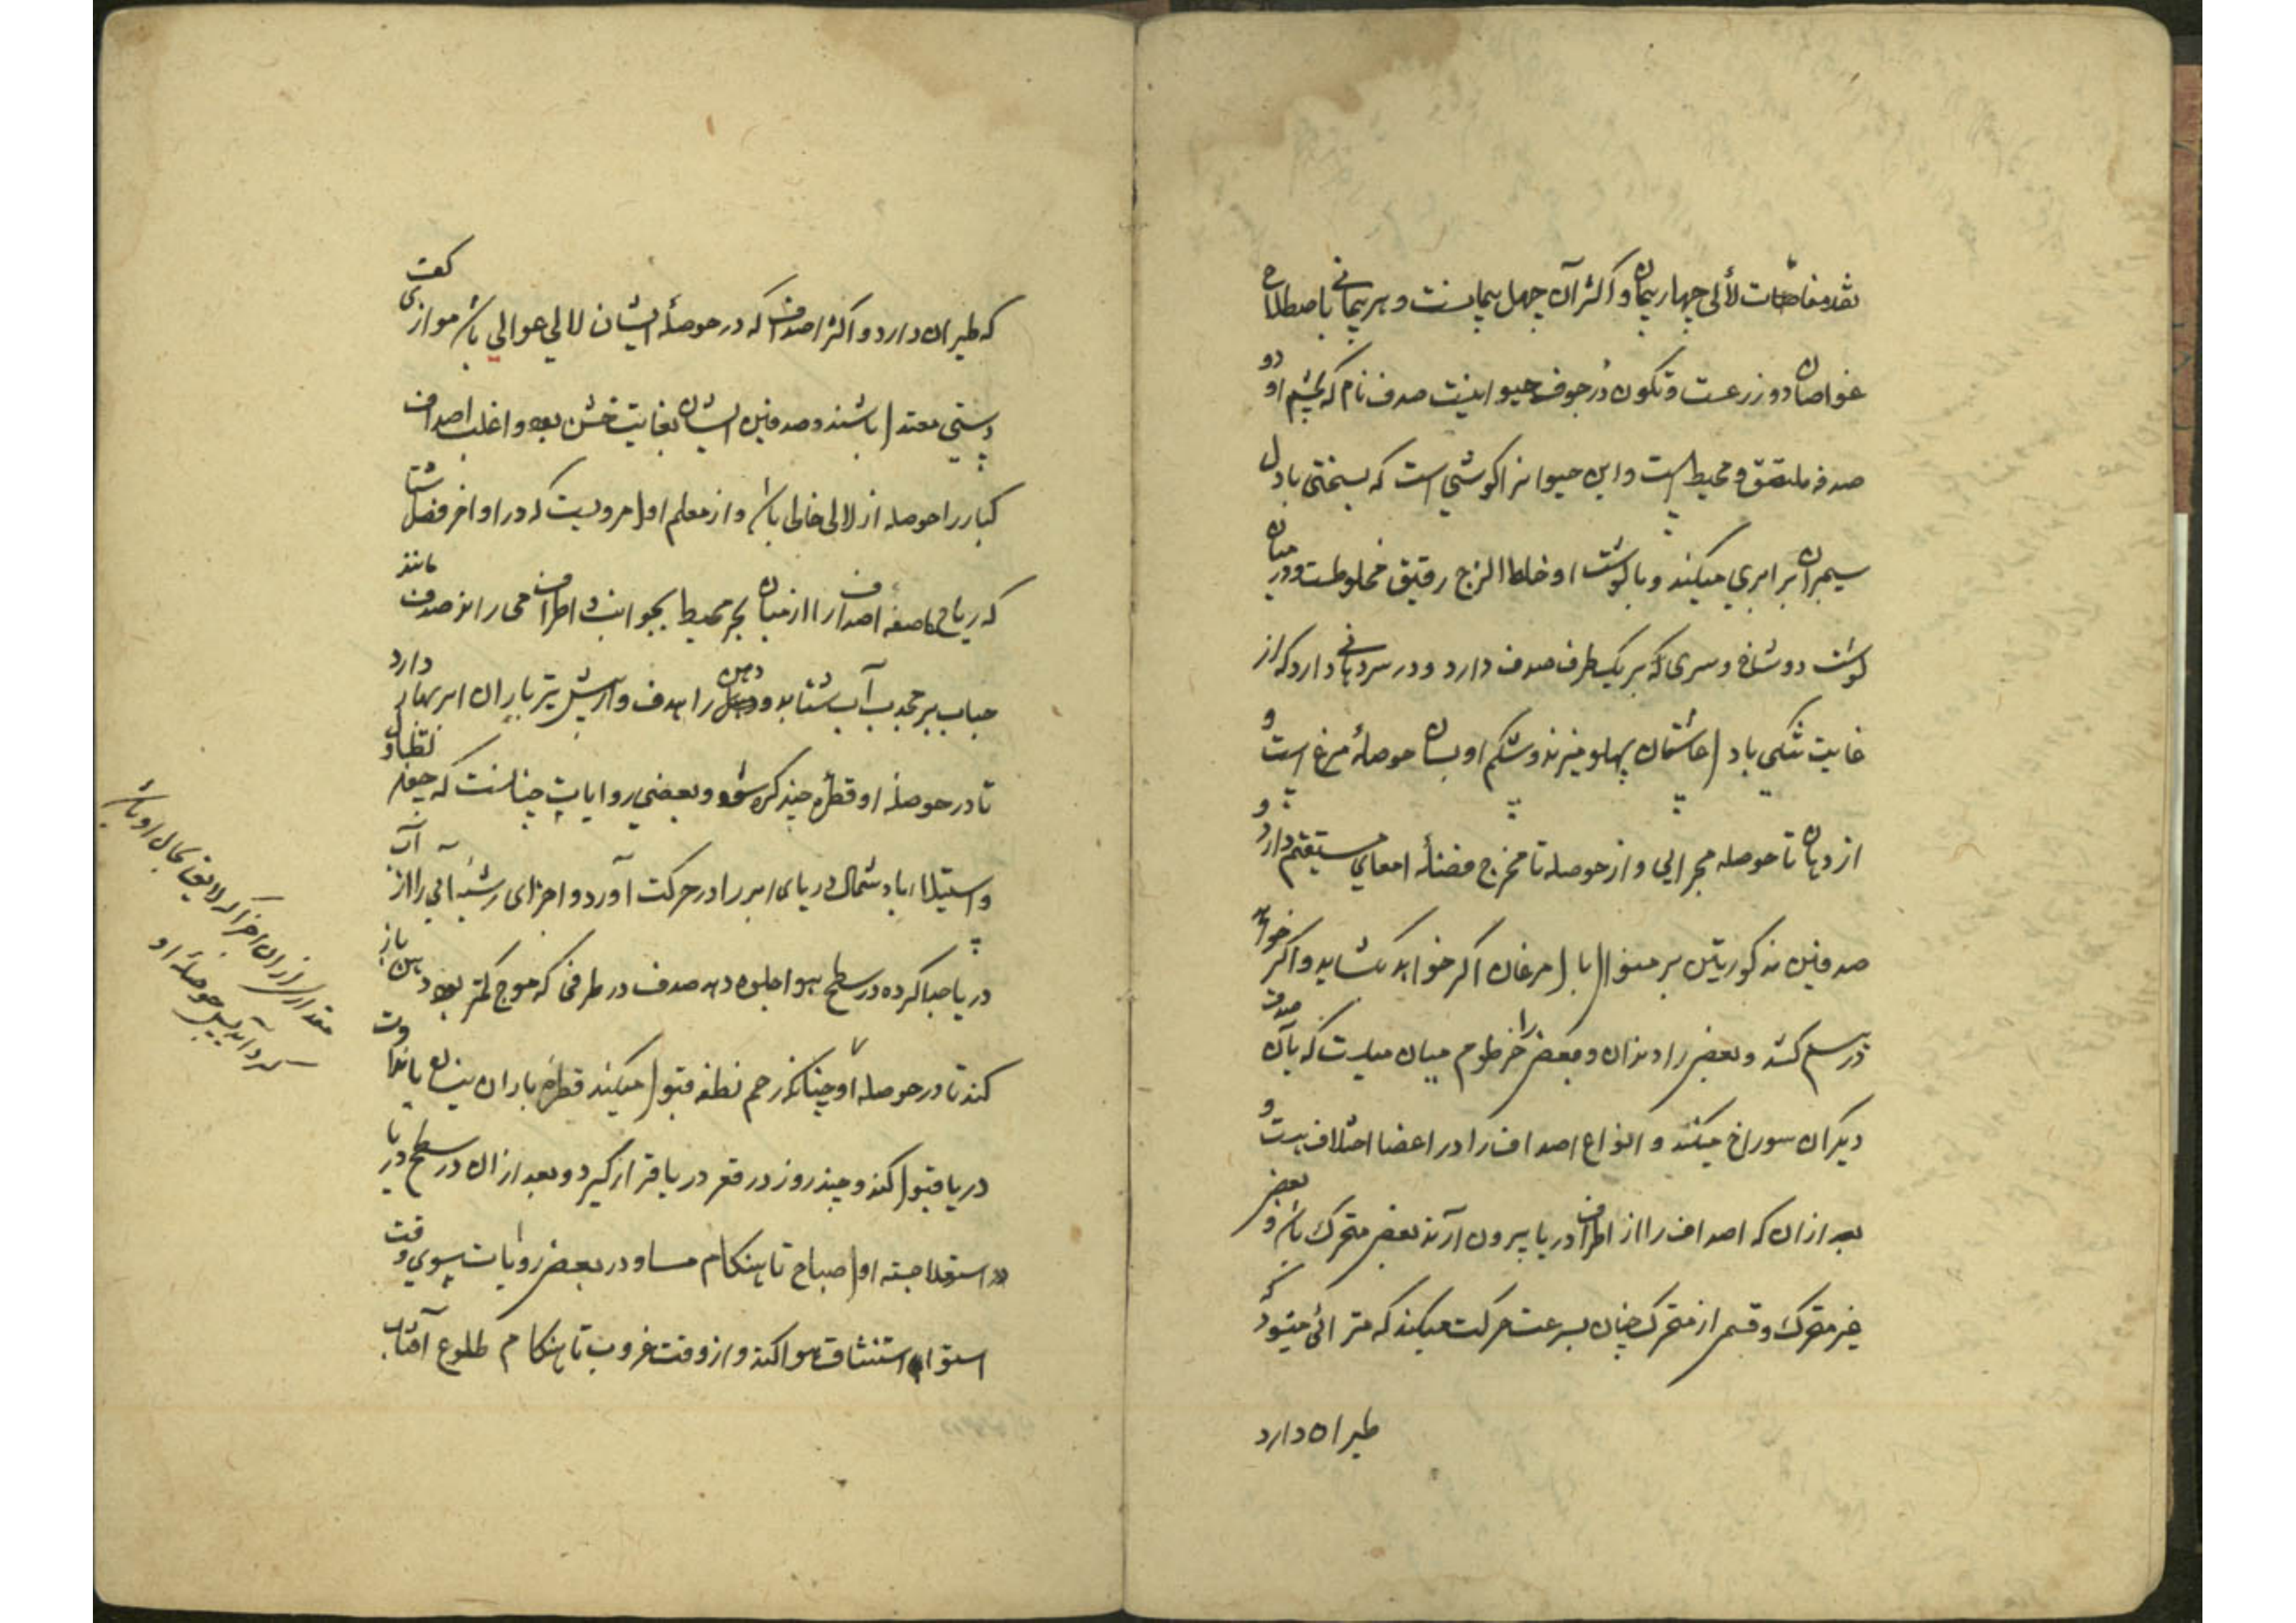 بعد مغاصات لألی چهار پیمان و اکثر آن چهل پیمانست و هر پیمانی باصطلاح
غواصان دو زرعست و تکون در جوف حیوانیست صدف نام که بچشم او دو
صدفه ملتصق و محیط است و این حیوانرا کوشتی است که بسختی با دل
سیمبران برابری میکند و با کوشت او خلط الزج رقیق مخلوطست و در میان
کوشت دو شاخ و سری که بر یک طرف صدف دارد و در سر دهانی دارد که از
غایت تنکی با دل عاشقان پهلو میزند و شکم او بسان حوصلهٔ مرغ است و
از دهان تا حوصله مجرایی و از حوصله تا مخرج فضله امعای مستقیم دارد و
صدفین مذکورین بر منوال بال مرغان اکر خواهد بکشاید و اکر خواهد
در هم کشد و بعضی را دندان و بعضی را خرطوم میان میانست که بآن صدف
دیکران سوراخ میکند و انواع اصداف را در اعضا اختلاف هست و
بعد ازان که اصداف را از اطراف دریا بیرون آرند بعضی متحرک باشد و بعضی
غیر متحرک و قسم از متحرک چنان بسرعت حرکت میکند که مترائی میشود که
طیران دارد
که طیران دارد و اکثر اصداف که در حوصلهٔ ایشان لالی عوالی باشد موازی کفت
دستی معتدل باشند و صدفین ایشان بغایت خشن بود و اغلب اصداف
کبار را حوصله از لالی خالی باشد و از معلم اول مرویست که در اواخر فصل شتا
که ریاح عاصفه اصداف را از میان بحر محیط بجوانب و اطراف می راند صدف مانند
حباب بر محدب آب شتابد و دهن را هدف وار پیش تیر باران ابر بهار دارد
تا در حوصلهٔ او قطرهٔ چند کره شود و بعضی روایات چنانست که چون
و استیلا باد شمال دریای ابر را در حرکت آورد و اجزای رشیهٔ آبی را از آب
دریا جدا کرده در سطح هوا جلوه دهد صدف در طرفی که موج کمتر بود دهن باز
کند تا در حوصله او چنانکه رحم نطفه قبول میکند قطرهٔ باران نیسان یا نداوت
دریا قبول کند و چند روز در قعر دریا قرار گیرد و بعد ازان در سطح دریا
استعلا جسته اول صباح تا هنکام مسا و در بعضی روایات بسوی وقت
استوا استنشاق هوا کند و از وقت غروب تا هنکام طلوع آفتاب
مقداری ازان اجزا که لایق بحال او باشد
کرد آید پس حوصلهٔ او